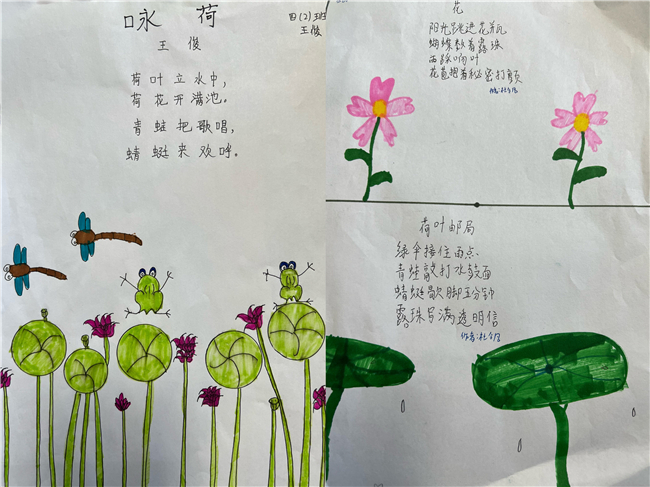 咏 荷
四(2)班
王俊
王 俊
荷叶立水中,
荷花开满池。
青蛙把歌唱,
蜻蜓来欢呼。
花
阳光跳进花
蝴蝶数着露珠
雨踩响叶
花苞抱着秘密打颤
作者:杜
荷叶邮局
绿伞接住雨点
青蛙敲打水鼓面
蜻蜓歇脚五分钟
露珠写满透明信
作者:杜